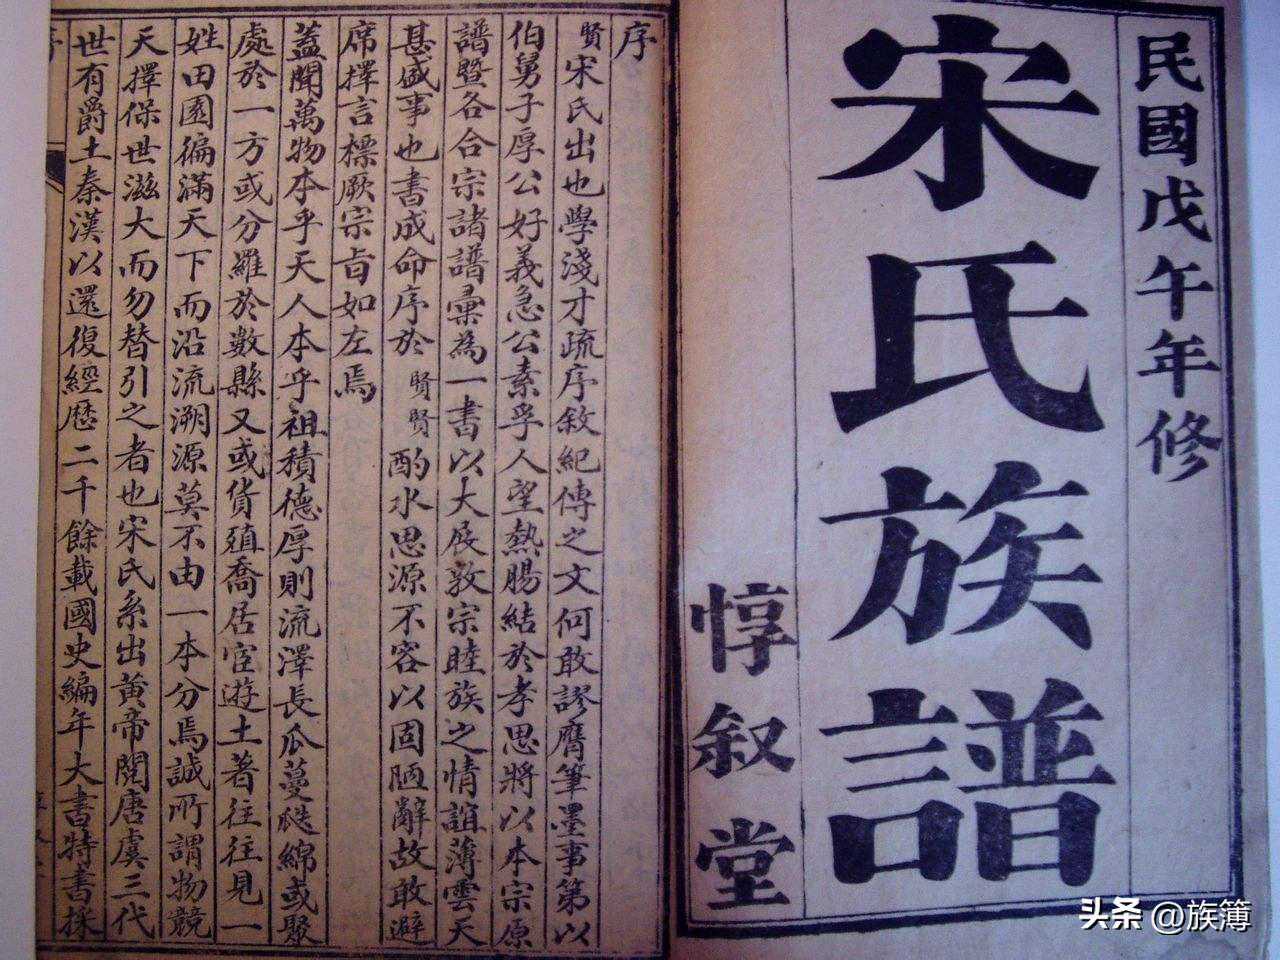 民國戊午年修
宋氏族譜
惇叙堂
序
賢宋氏出也學淺才疏序敘紀傳之文何敢謬膺筆墨事第以
伯舅子厚公好義急公素孚人望熱腸結於孝思將以本宗原
譜暨各合宗諸譜彙為一書以大展敦宗睦族之情誼薄雲天
甚盛事也書成命序於賢賢酌水思源不容以固陋辭故敢避
席擇言標厥宗旨如左焉
蓋聞萬物本乎天人本乎祖積德厚則流澤長瓜蔓瓞綿或聚
處於一方或分羅於數縣又或貨殖喬居宦遊土著往往見一
姓田園徧滿天下而沿流溯源莫不由一本分焉誠所謂物競
天擇保世滋大而勿替引之者也宋氏系出黄帝閱唐虞三代
世有爵土秦漢以還復經歷二千餘載國史編年大書特書採
头条 @族簿